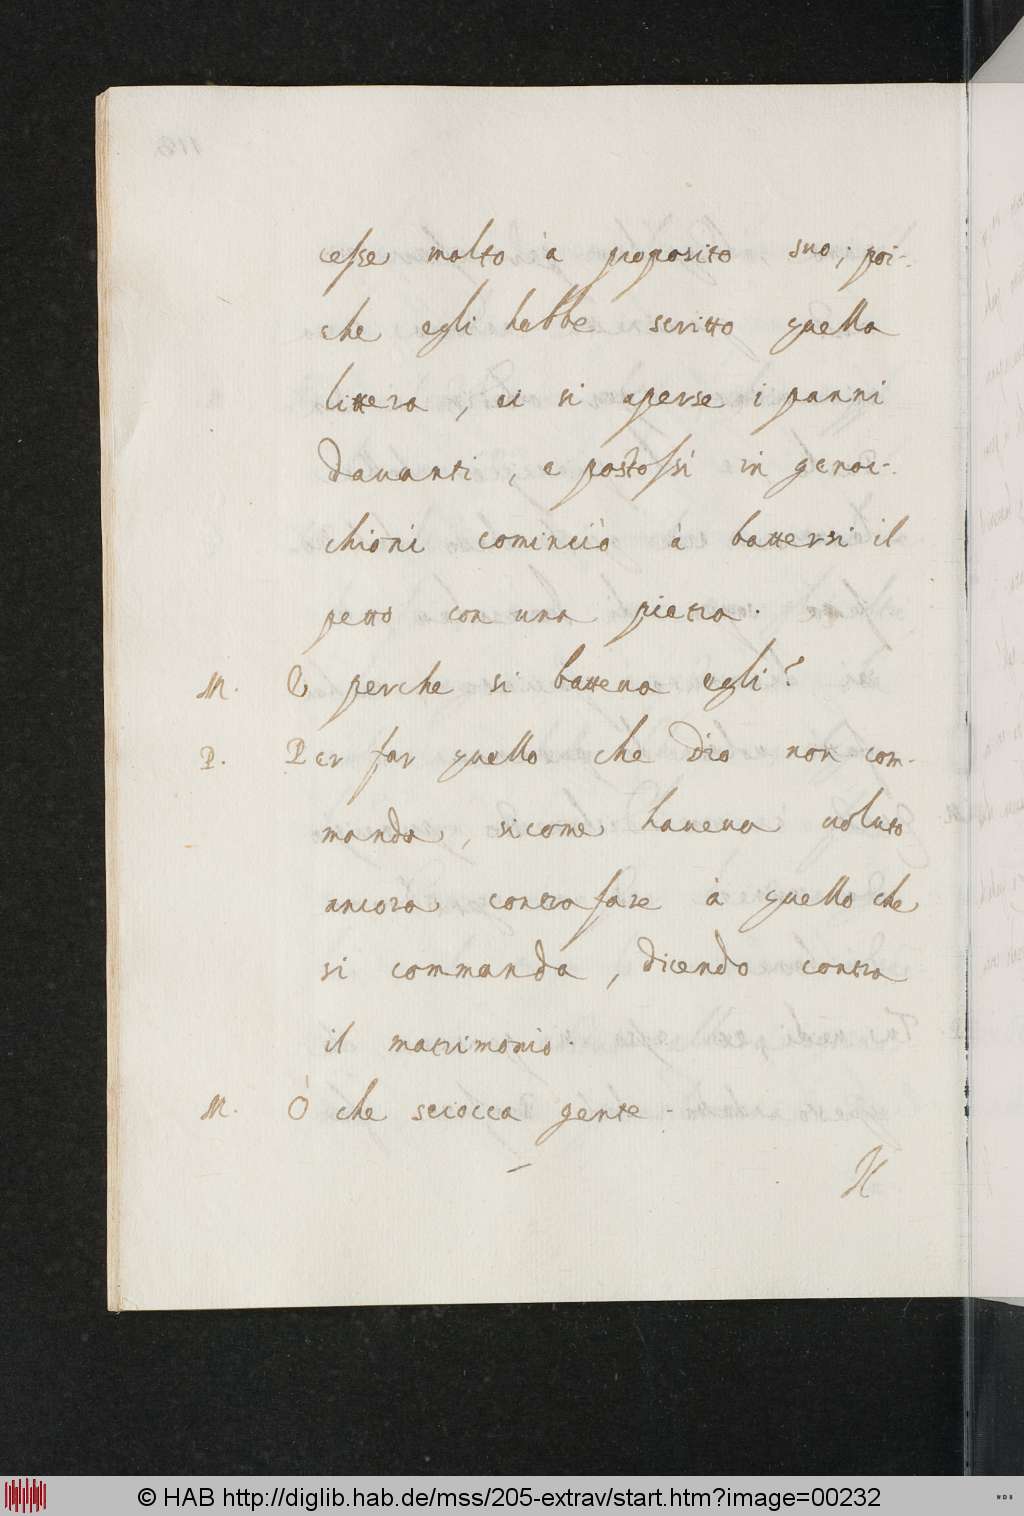 cesse molto à proposito suo; poi-
che egli hebbe scritto quella
littera, ei si aperse i panni
davanti, e postossi in genoc-
chioni cominciò à battersi il
petto con una pietra.
M. E perche si batteva egli?
P. Per far quello che Dio non com-
manda, sicome haveva voluto
ancora contrafare à quello che
si commanda, dicendo contra
il matrimonio.
M. Ò che sciocca gente.
© HAB http://diglib.hab.de/mss/205-extrav/start.htm?image=00232